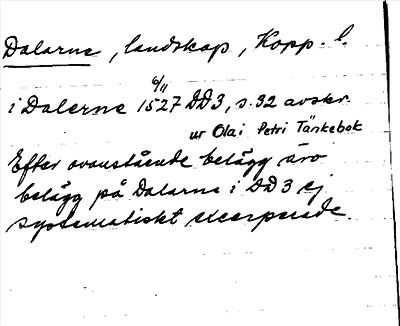 Dalarne, landskap, Kopp. l.
6/11
i Dalerne 1527 DD3, s. 32 avskr.
ur Olai Petri Tänkebok
Efter ovanstående belägg äro
belägg på Dalarne i DD 3 ej
systematiskt excerperade.